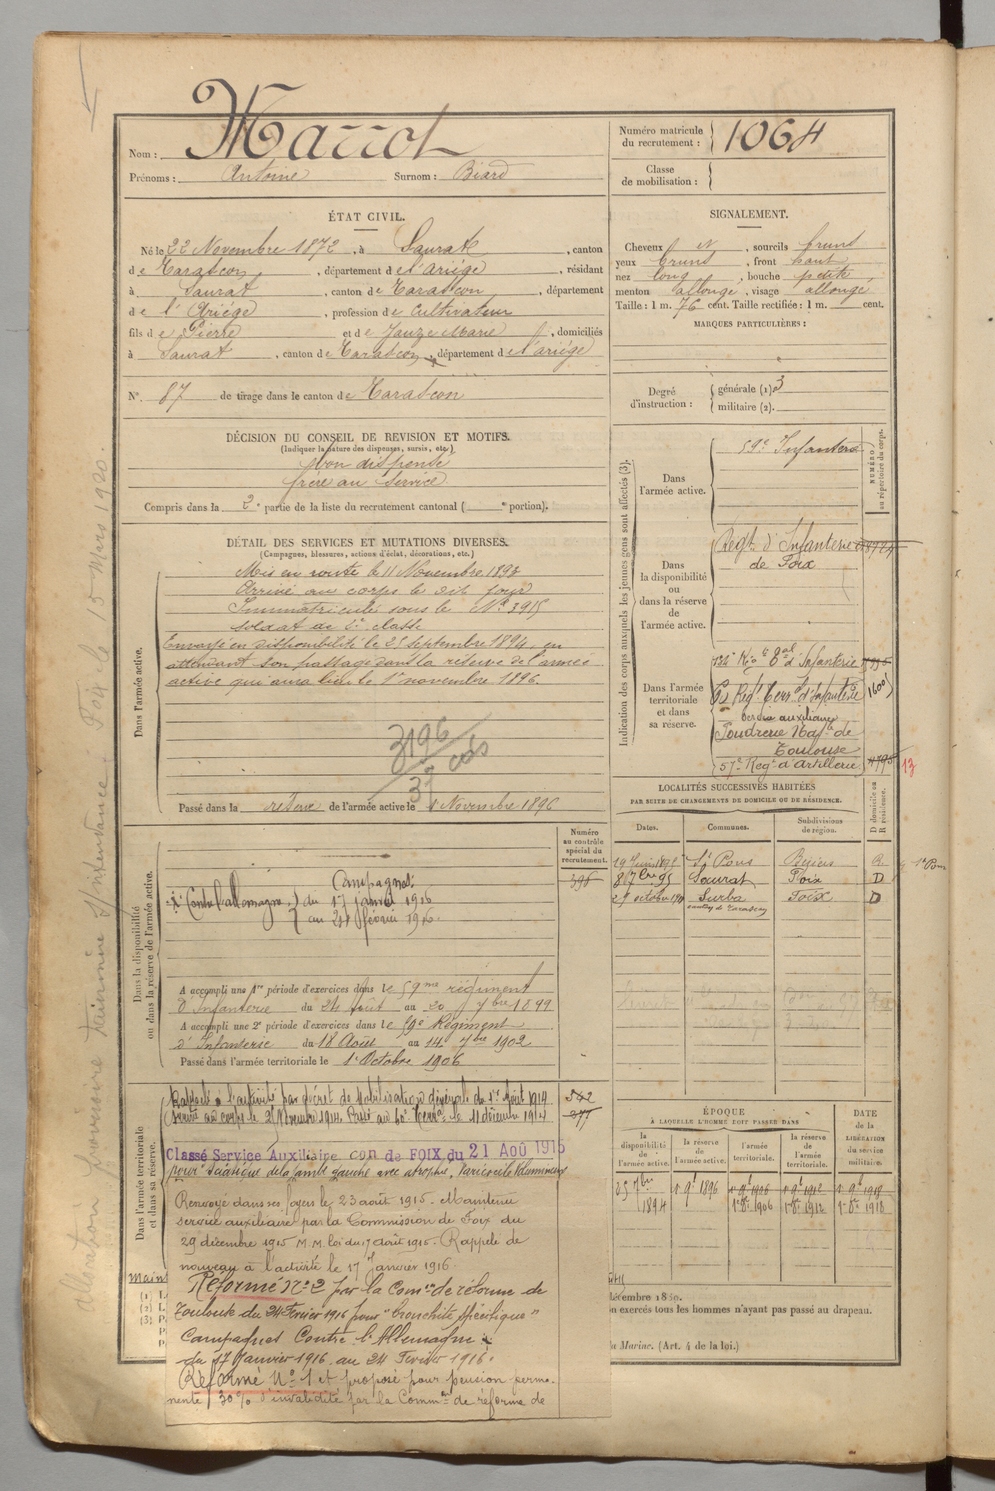 Marrot
Nom :
Prénoms : Antoine Surnom : Biard
Numéro matricule du recrutement : 1064
Classe de mobilisation :
ÉTAT CIVIL.
Né le 22 Novembre 1872, à Saurat, canton
de Tarascon, département de l'Ariège, résidant
à Saurat, canton de Tarascon, département
de l'Ariège, profession de Cultivateur
fils de Pierre et de Jauze Marie, domiciliés
à Saurat, canton de Tarascon, département de l'ariège
N° 87 de tirage dans le canton de Tarascon
DÉCISION DU CONSEIL DE REVISION ET MOTIFS.
(Indiquer la nature des dispenses, sursis, etc.)
Bon dispensé
frère au service
Compris dans la 2e partie de la liste du recrutement cantonal ( e portion).
SIGNALEMENT.
Cheveux N, sourcils bruns
yeux bruns, front haut
nez long, bouche petite
menton allongé, visage allongé
Taille : 1 m. 76 cent. Taille rectifiée : 1 m. cent.
MARQUES PARTICULIÈRES :
Degré d'instruction : générale (1) 3
militaire (2).
DÉTAIL DES SERVICES ET MUTATIONS DIVERSES.
(Campagnes, blessures, actions d'éclat, décorations, etc.)
Dans l'armée active.
Mis en route le 11 Novembre 1893
Arrivé au corps le dit jour
Immatriculé sous le N° 3915
soldat de 2e classe
Envoyé en disponibilité le 25 septembre 1894, en
attendant son passage dans la réserve de l'armée
active qui aura lieu le 1er novembre 1896.
3196
37
Passé dans la réserve de l'armée active le 1 Novembre 1896
Indication des corps auxquels les jeunes gens sont affectés (3).
NUMÉRO au répertoire du corps.
Dans l'armée active.
59e Infanterie
Dans la disponibilité ou dans la réserve de l'armée active.
Régt d'Infanterie
de Foix
Dans l'armée territoriale et dans sa réserve.
134e Régt Tal d'Infanterie
Régt Terral d'Infanterie 1600
Service auxiliaire
Poudrerie Natle de
Toulouse
57e Regt d'Artillerie 13
LOCALITÉS SUCCESSIVES HABITÉES
PAR SUITE DE CHANGEMENTS DE DOMICILE OU DE RÉSIDENCE.
Dates. Communes. Subdivisions de région. D domicile ou R résidence.
St Pons Béziers R
8 7bre 95 Saurat Foix D
Surba Foix D
canton de Tarascon
Numéro au contrôle spécial du recrutement.
396
Dans la disponibilité ou dans la réserve de l'armée active.
Campagnes
(Contre l'allemagne) du 17 janvier 1916
au 24 février 1916.
A accompli une 1re période d'exercices dans le 59me régiment
d'Infanterie du 24 août au 20 7bre 1899
A accompli une 2e période d'exercices dans le 59e Régiment
d'Infanterie du 18 Août au 14 7bre 1902
Passé dans l'armée territoriale le 1er Octobre 1906
Dans l'armée territoriale et dans sa réserve.
Rappelé à l'activité par décret de Mobilisation Générale du 1er Août 1914
Arrivé au corps le 2 Novembre 1914. Passé au Terral le 11 décembre 1914
Classé Service Auxiliaire con de FOIX du 21 Aoû 1915
pour sciatique de la jambe gauche avec atrophie, Varicocèle volumineux
Renvoyé dans ses foyers le 23 août 1915. Maintenu
service auxiliaire par la Commission de Foix du
29 décembre 1915 M.M. loi du 17 août 1915. Rappelé de
nouveau à l'activité le 17 Janvier 1916
Réformé N° 2 par la Comon de réforme de
Toulouse du 24 Février 1916 pour "bronchite spécifique"
Campagnes Contre l'Allemagne
du 17 Janvier 1916 au 24 Février 1916.
Réformé N° 1 et proposé pour pension perma-
nente 30% d'invalidité par la Common de réforme de
ÉPOQUE
À LAQUELLE L'HOMME DOIT PASSER DANS
DATE DE LA LIBÉRATION DU SERVICE MILITAIRE.
la disponibilité de l'armée active. la réserve de l'armée active. l'armée territoriale. la réserve de l'armée territoriale.
25 7bre 1894
1er 9bre 1896
1er 8bre 1906
1er 8bre 1912
1er 8bre 1918
on exercés tous les hommes n'ayant pas passé au drapeau.
Marine. (Art. 4 de la loi.)
allocation provisoire trimestrielle Intendance Foix le 15 Mars 1920.